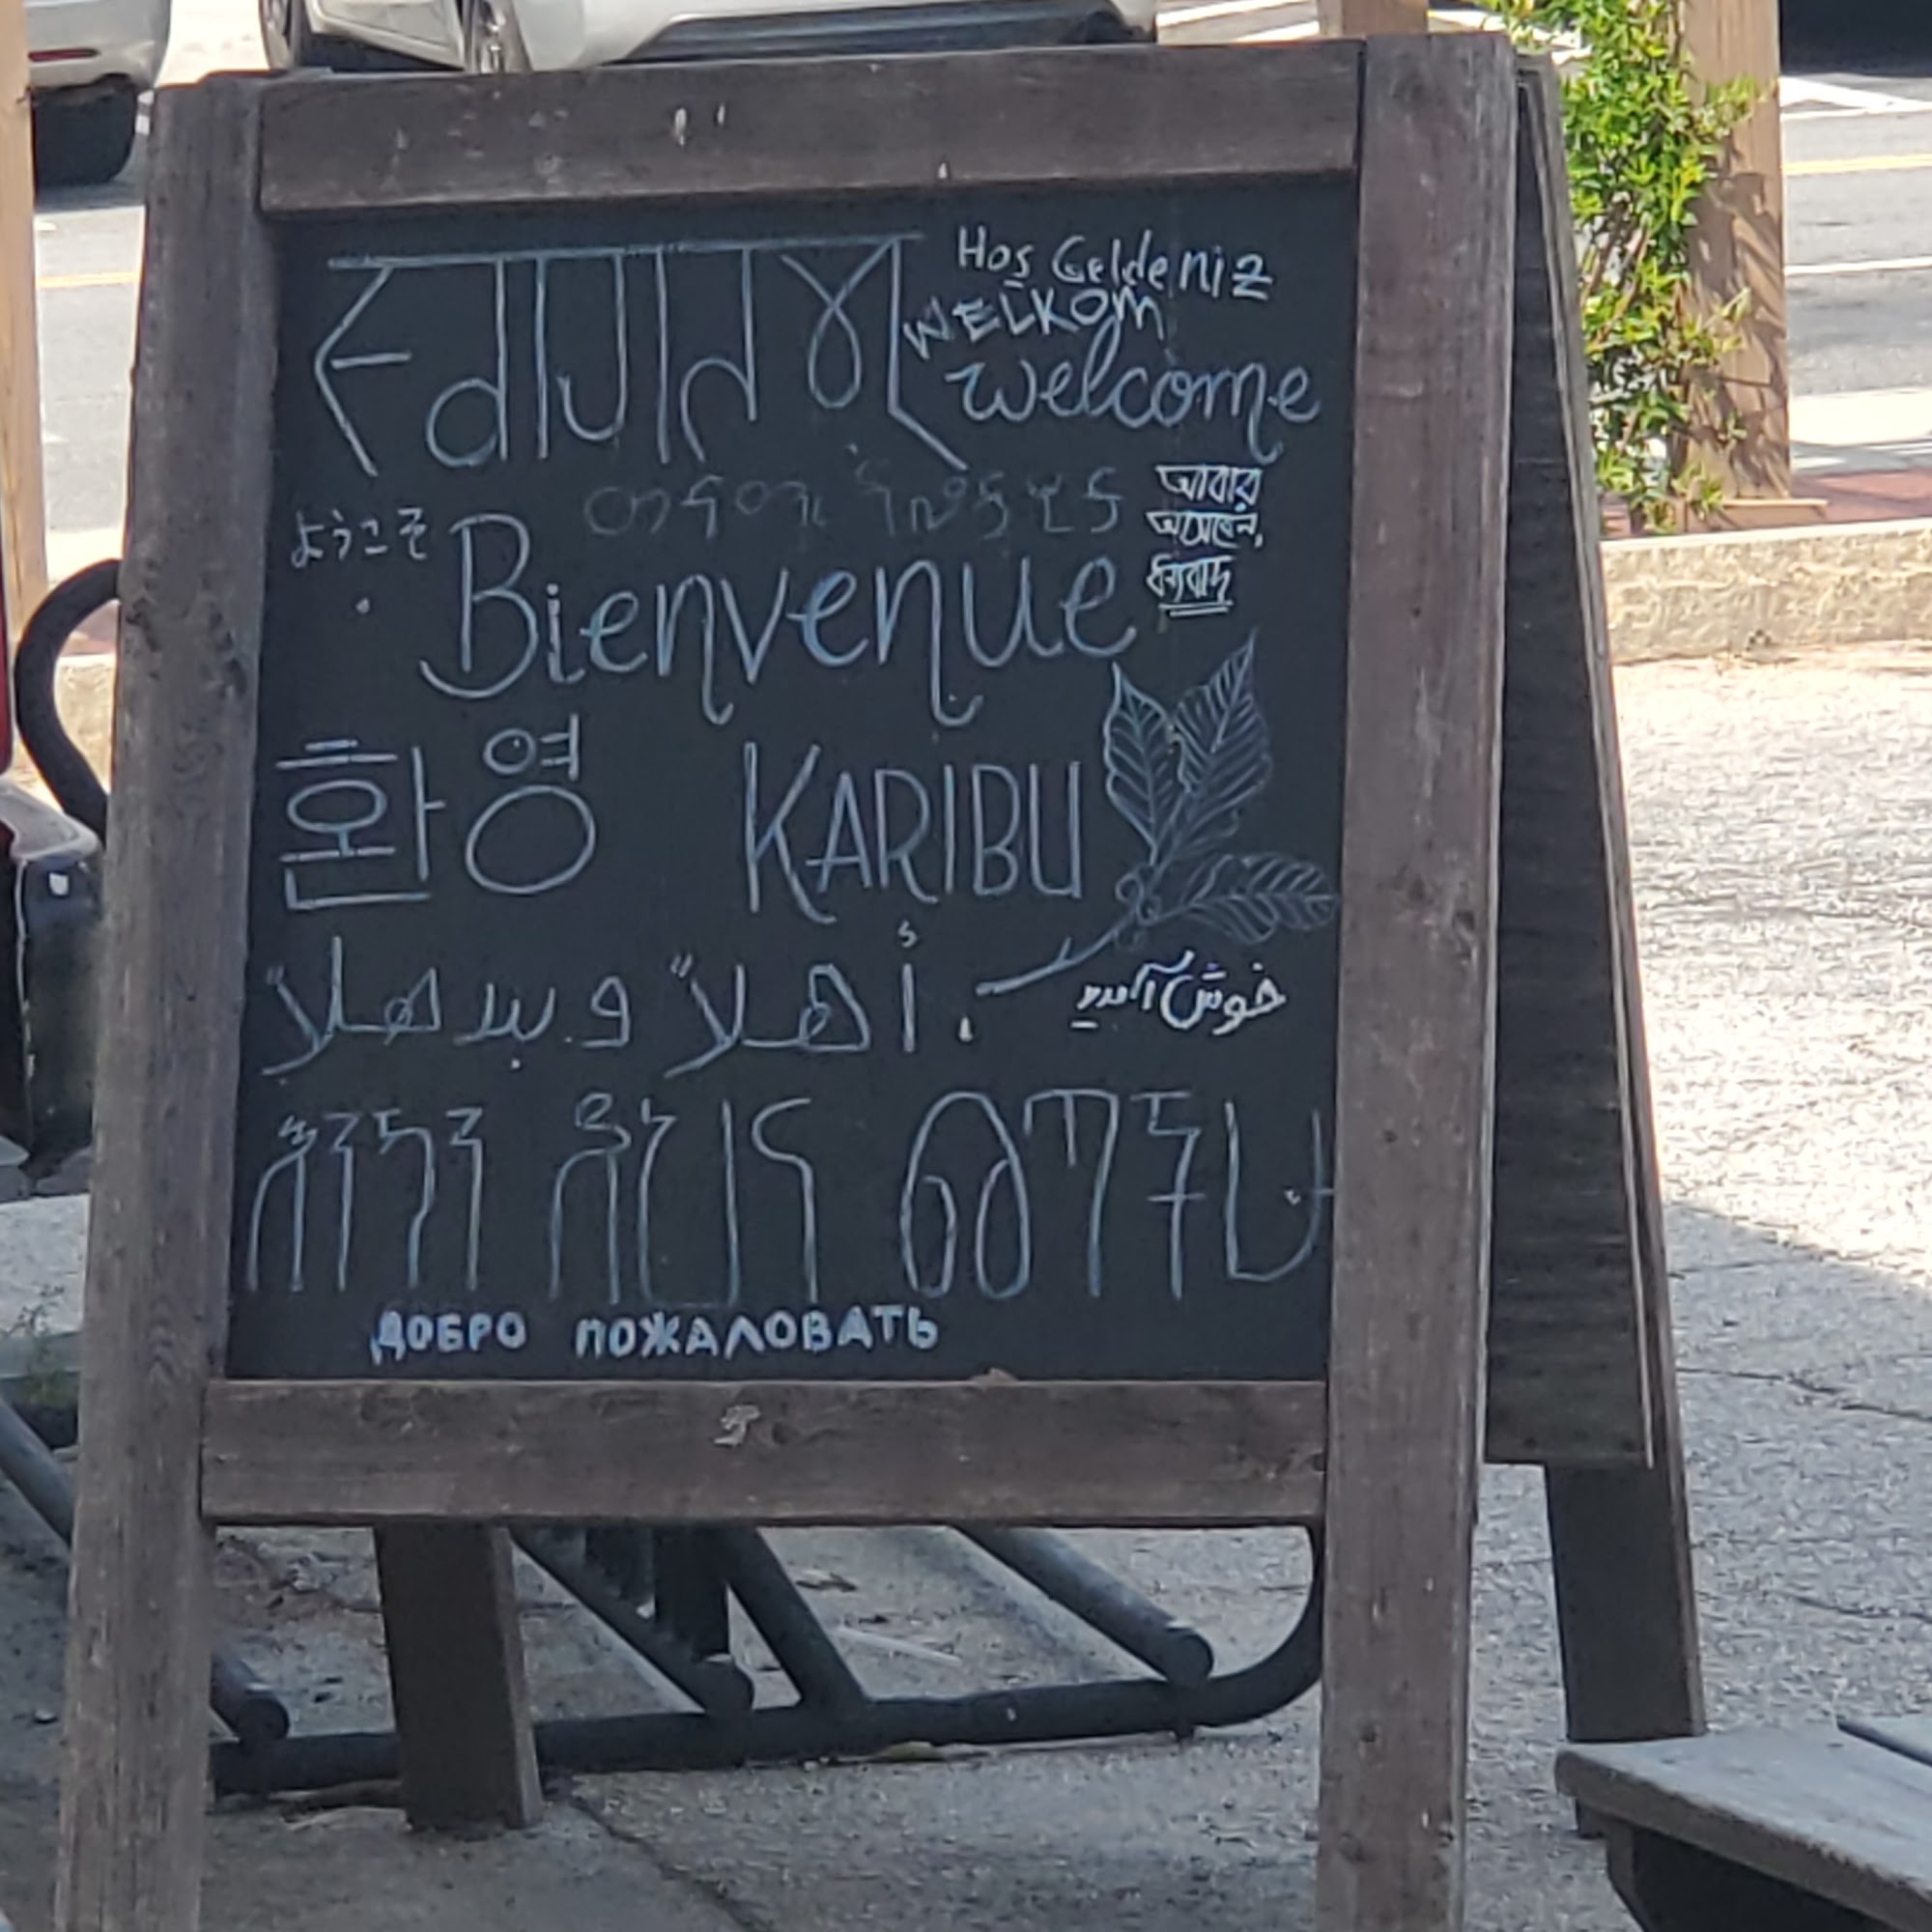 स्वागतम्
Hoş Geldeniz
WELKOM
welcome
ようこそ
আবার
আসবেন,
ধন্যবাদ
Bienvenue
환영
KARIBU
أهلاً وبيد هلا
خوش آمدید
እንኳን ደህና መጣችሁ
ДОБРО ПОЖАЛОВАТЬ